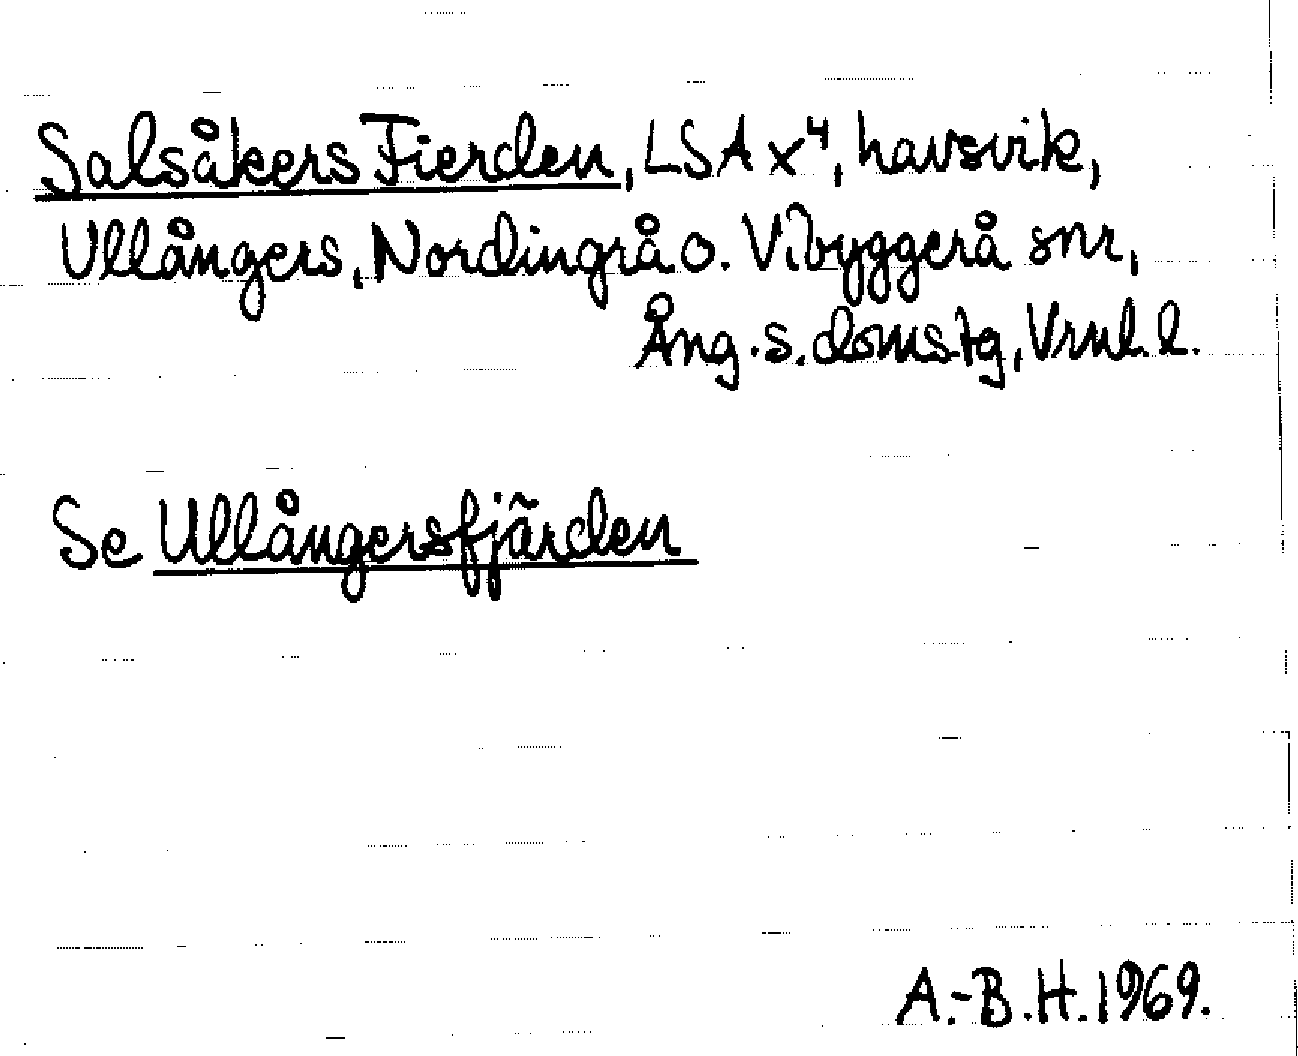 Salsåkers Fierden, LSA x⁴, havsvik,
Ullångers, Nordingrå o. Vibyggerå snr,
Ång. s. domstg, Vrnl. l.
Se Ullångersfjärden
A.-B.H. 1969.